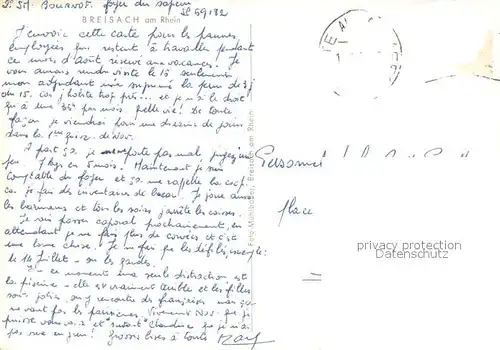 2e St Bournot. foyer du sapeur
SP 69132
BREISACH am Rhein
J'envoie cette carte pour les pauvres
employées qui restent à travailler pendant
ce mois d'Août réservé aux vacances. Je
vous aurais rendu visite le 15 seulement
mon adjudant
du 15. car j'hésite trop près... et je n'ai le droit
qu'à une 36h par mois. Quelle vie! De toute
façon je viendrai pour une dizaine de jours
dans la 1ère quinz. de Nov.
A part ça je me porte pas mal, jugez un
peu 7 kgs en 5 mois. Maintenant je suis
comptable du foyer et ça me rappelle la coop
car je fais des inventaires de bazar. Je joue aussi
les barmans et tous les soirs j'arrête les caisses.
Je vais passer caporal prochainement, en
attendant je ne fais plus de corvées et c'est
une bonne chose. Je ne fais que les défilés, exemple:
le 14 Juillet - ou les gardes.
En ce moment ma seule distraction est
la piscine - elle est vraiment terrible et les filles
sont jolies. on y rencontre des françaises mais ça
ne vaut pas les parisiennes. Vivement Nov. que je
puisse vous voir et surtout Claudine que je n'ai
pas vue en juin! Grosses bises à toutes
Personnel
place
privacy protection
Datenschutz